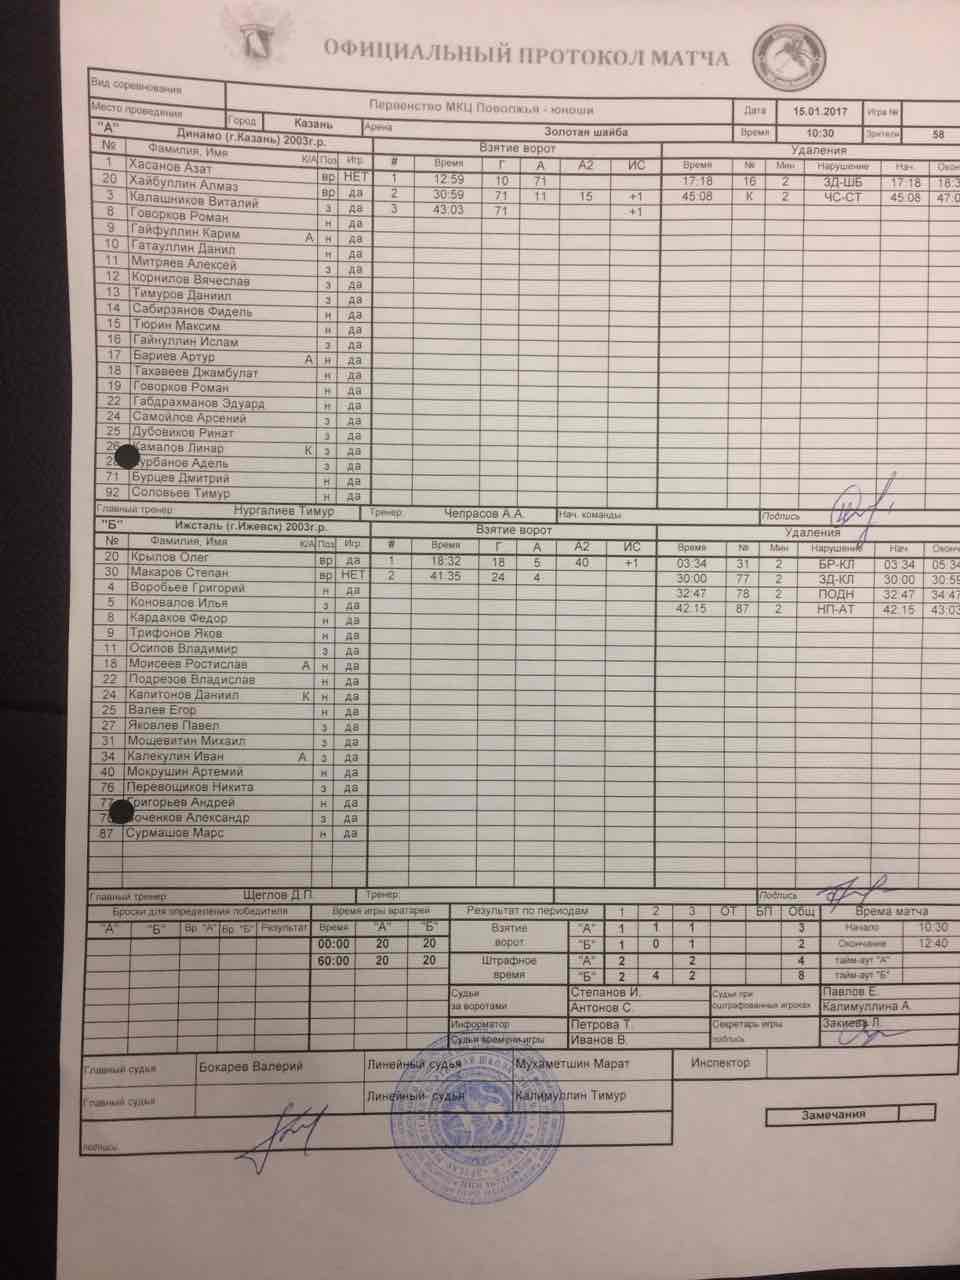 ОФИЦИАЛЬНЫЙ ПРОТОКОЛ МАТЧА
Вид соревнования Первенство МКЦ Поволжья - юноши Дата 15.01.2017 Игра №
Место проведения Город Казань Арена Золотая шайба Время 10:30 Зрители 58
"А" Динамо (г.Казань) 2003г.р. Взятие ворот Удаления
№ Фамилия, Имя К/А Поз Игр # Время Г А А2 ИС Время № Мин Нарушение Нач. Окон
1 Хасанов Азат вр НЕТ 1 12:59 10 71 17:18 16 2 ЗД-ШБ 17:18 18:3
20 Хайбуллин Алмаз вр да 2 30:59 71 11 15 +1 45:08 К 2 ЧС-СТ 45:08 47:0
3 Калашников Виталий з да 3 43:03 71 +1
8 Говорков Роман н да
9 Гайфуллин Карим А н да
10 Гатауллин Данил н да
11 Митряев Алексей з да
12 Корнилов Вячеслав з да
13 Тимуров Даниил з да
14 Сабирзянов Фидель н да
15 Тюрин Максим н да
16 Гайнуллин Ислам з да
17 Бариев Артур А н да
18 Тахавеев Джамбулат н да
19 Говорков Роман н да
22 Габдрахманов Эдуард н да
24 Самойлов Арсений з да
25 Дубовиков Ринат з да
26 Камалов Линар К з да
2 урбанов Адель з да
71 Бурцев Дмитрий н да
92 Соловьев Тимур н да
Главный тренер Нургалиев Тимур Тренер Чепрасов А.А. Нач. команды Подпись
"Б" Ижсталь (г.Ижевск) 2003г.р. Взятие ворот Удаления
№ Фамилия, Имя К/А Поз Игр # Время Г А А2 ИС Время № Мин Нарушение Нач Оконч
20 Крылов Олег вр да 1 18:32 18 5 40 +1 03:34 31 2 БР-КЛ 03:34 05:34
30 Макаров Степан вр НЕТ 2 41:35 24 4 30:00 77 2 ЗД-КЛ 30:00 30:59
4 Воробьев Григорий н да 32:47 78 2 ПОДН 32:47 34:47
5 Коновалов Илья з да 42:15 87 2 НП-АТ 42:15 43:03
8 Кардаков Федор н да
9 Трифонов Яков н да
11 Осипов Владимир з да
18 Моисеев Ростислав А н да
22 Подрезов Владислав н да
24 Капитонов Даниил К н да
25 Валев Егор н да
27 Яковлев Павел з да
31 Мощевитин Михаил з да
34 Калекулин Иван А з да
40 Мокрушин Артемий н да
76 Перевощиков Никита з да
77 Григорьев Андрей н да
7 оченков Александр з да
87 Сурмашов Марс н да
Главный тренер Щеглов Д.П. Тренер: Подпись
Броски для определения победителя Время игры вратарей Результат по периодам 1 2 3 ОТ БП Общ Врема матча
"А" "Б" Вр. "А" Вр. "Б" Результат Время "А" "Б" Взятие ворот "А" 1 1 1 3 Начало 10:30
00:00 20 20 "Б" 1 0 1 2 Окончание 12:40
60:00 20 20 Штрафное время "А" 2 2 4 тайм-аут "А"
"Б" 2 4 2 8 тайм-аут "Б"
Судьи за воротами Степанов И. Судьи при оштрафованных игроках Павлов Е.
Антонов С. Калимуллина А.
Информатор Петрова Т. Секретарь игры Закиева Л.
Судьи времени игры Иванов В. подпись
Главный судья Бокарев Валерий Линейный судья Мухаметшин Марат Инспектор
Главный судья Линейный судья Калимуллин Тимур
Замечания
подпись